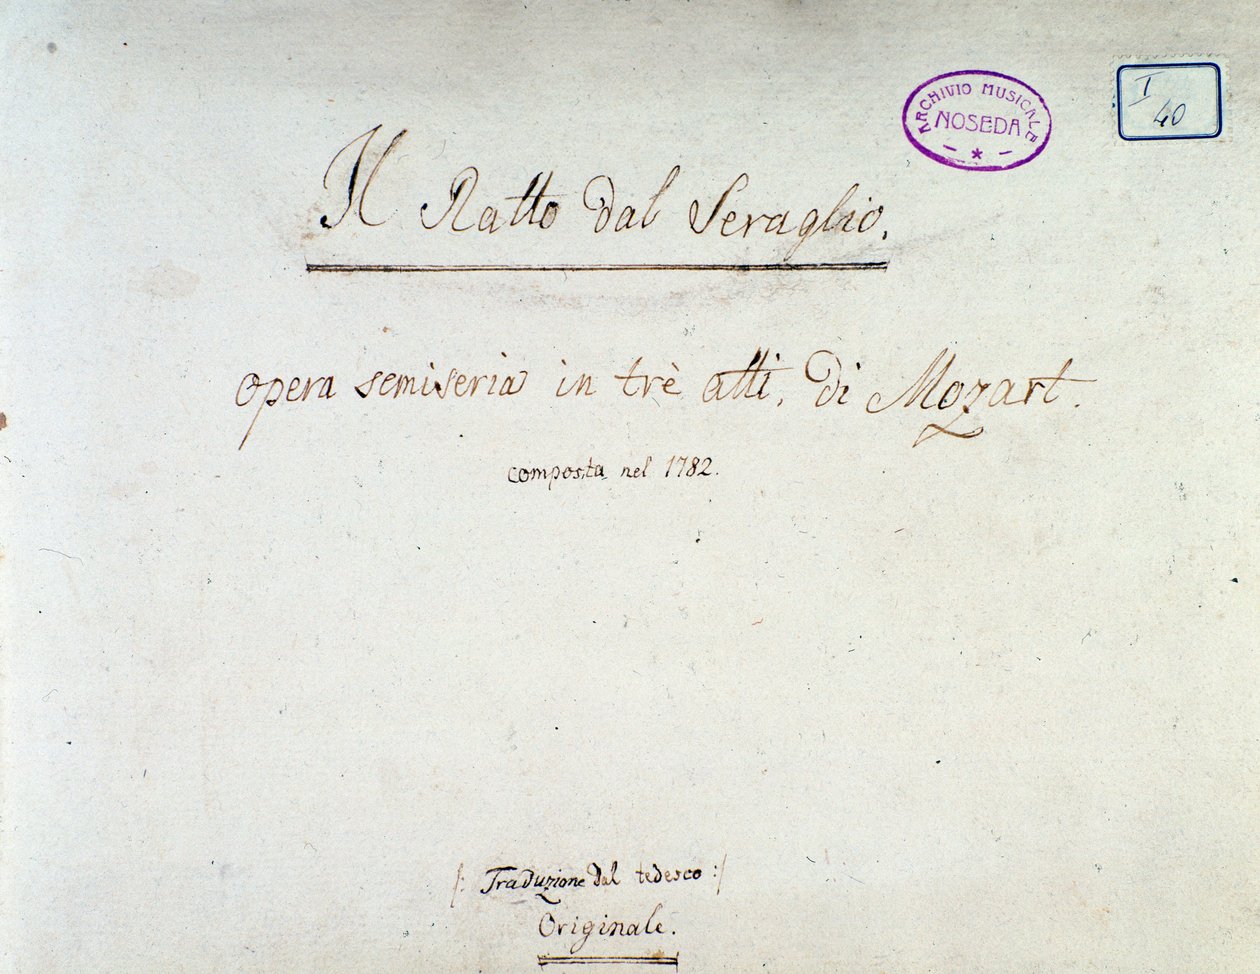 ARCHIVIO MUSICALE
NOSEDA
I
40
Il Ratto dal Seraglio.
opera semiseria in trè atti, di Mozart.
composta nel 1782.
/: Traduzione dal tedesco :/
Originale.